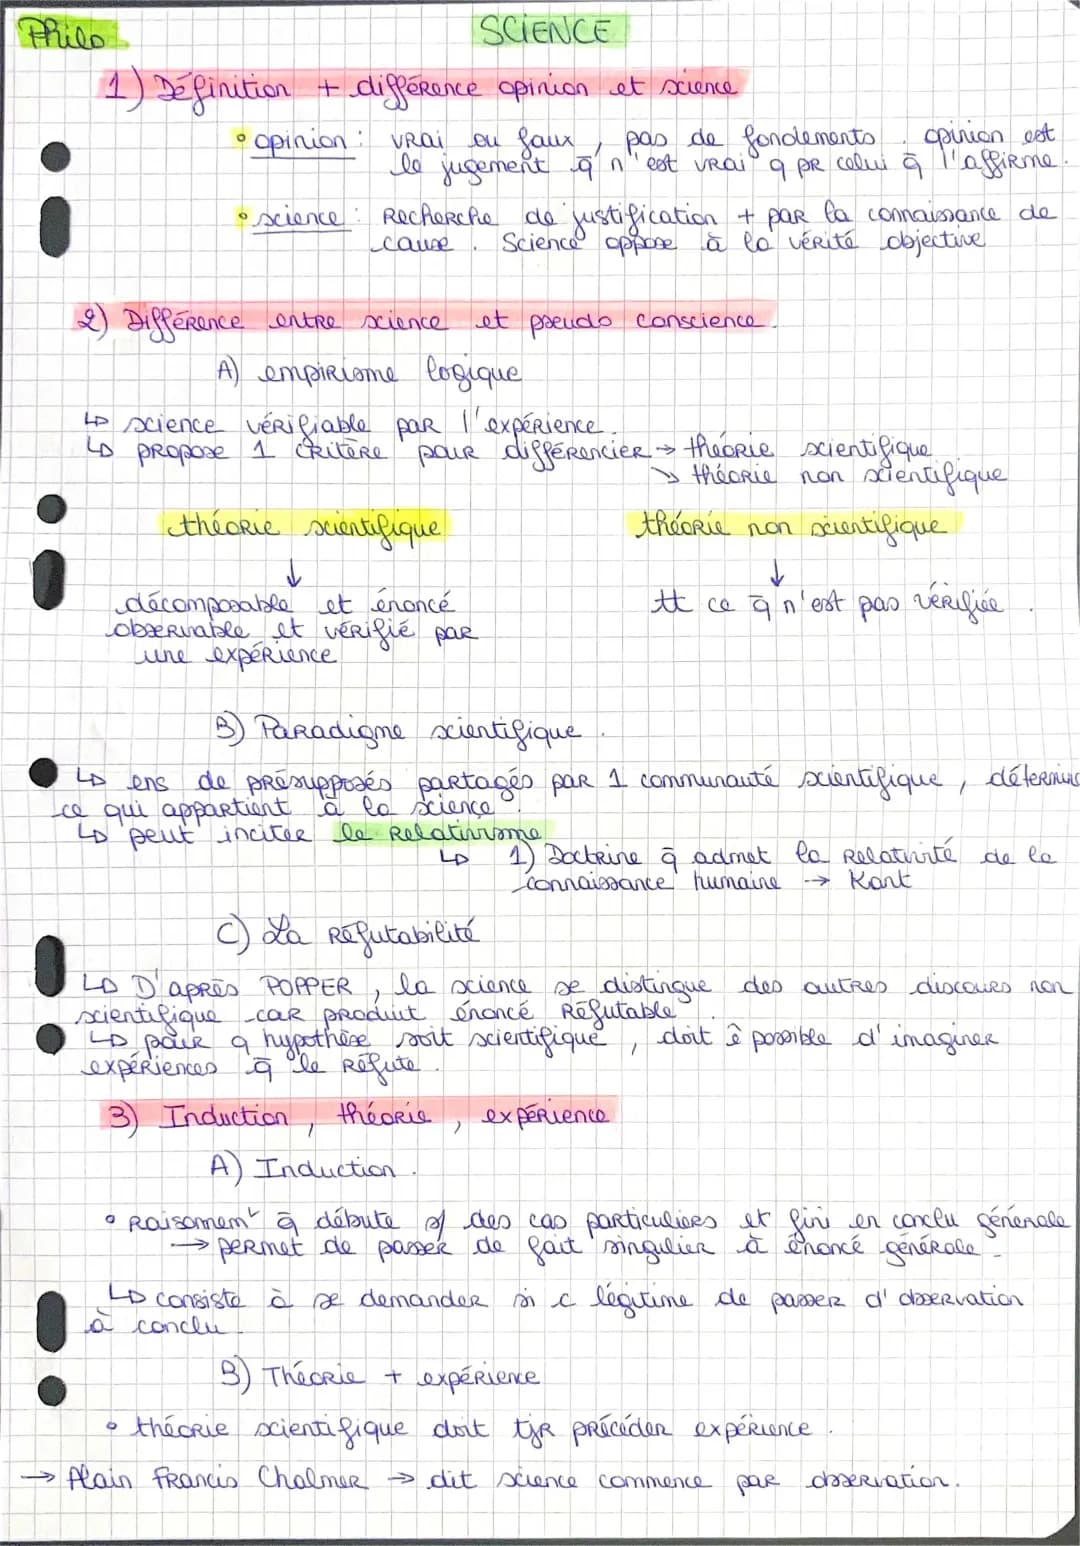 Philo
SCIENCE
1) Définition + différence opinion et science
• opinion : vrai ou faux, pas de fondements. opinion est
le jugement q̄ n'est vrai q pr celui q̄ l'affirme.
• science : Recherche de justification + par la connaissance de
cause. Science oppose à la vérité objective
2) Différence entre science et pseudo conscience.
A) empirisme logique
↳ science vérifiable par l'expérience.
↳ propose 1 critère pour différencier → théorie scientifique
↘ théorie non scientifique
théorie scientifique
théorie non scientifique
↓
↓
décomposable et énoncé
tt ce q̄ n'est pas vérifiée.
observable et vérifié par
une expérience
B) Paradigme scientifique.
↳ ens de présupposés partagés par 1 communauté scientifique, détermine
ce qui appartient à la science.
↳ peut inciter le relativisme
↳ 1) Doctrine q̄ admet la relativité de la
connaissance humaine → Kant
C) La Réfutabilité
↳ D'après POPPER, la science se distingue des autres discours non
scientifique car produit énoncé réfutable.
↳ pour q hypothèse soit scientifique, doit ê possible d'imaginer
expériences q̄ le réfute.
3) Induction, théorie, expérience
A) Induction.
• Raisonnemt q̄ débute des cas particuliers et fini en conclu générale
→ permet de passer de fait singulier à énoncé générale.
↳ consiste à se demander si c légitime de passer d'observation
à conclu.
B) Théorie + expérience
• théorie scientifique doit tjr précéder expérience.
→ Alain Francis Chalmer → dit science commence par observation.